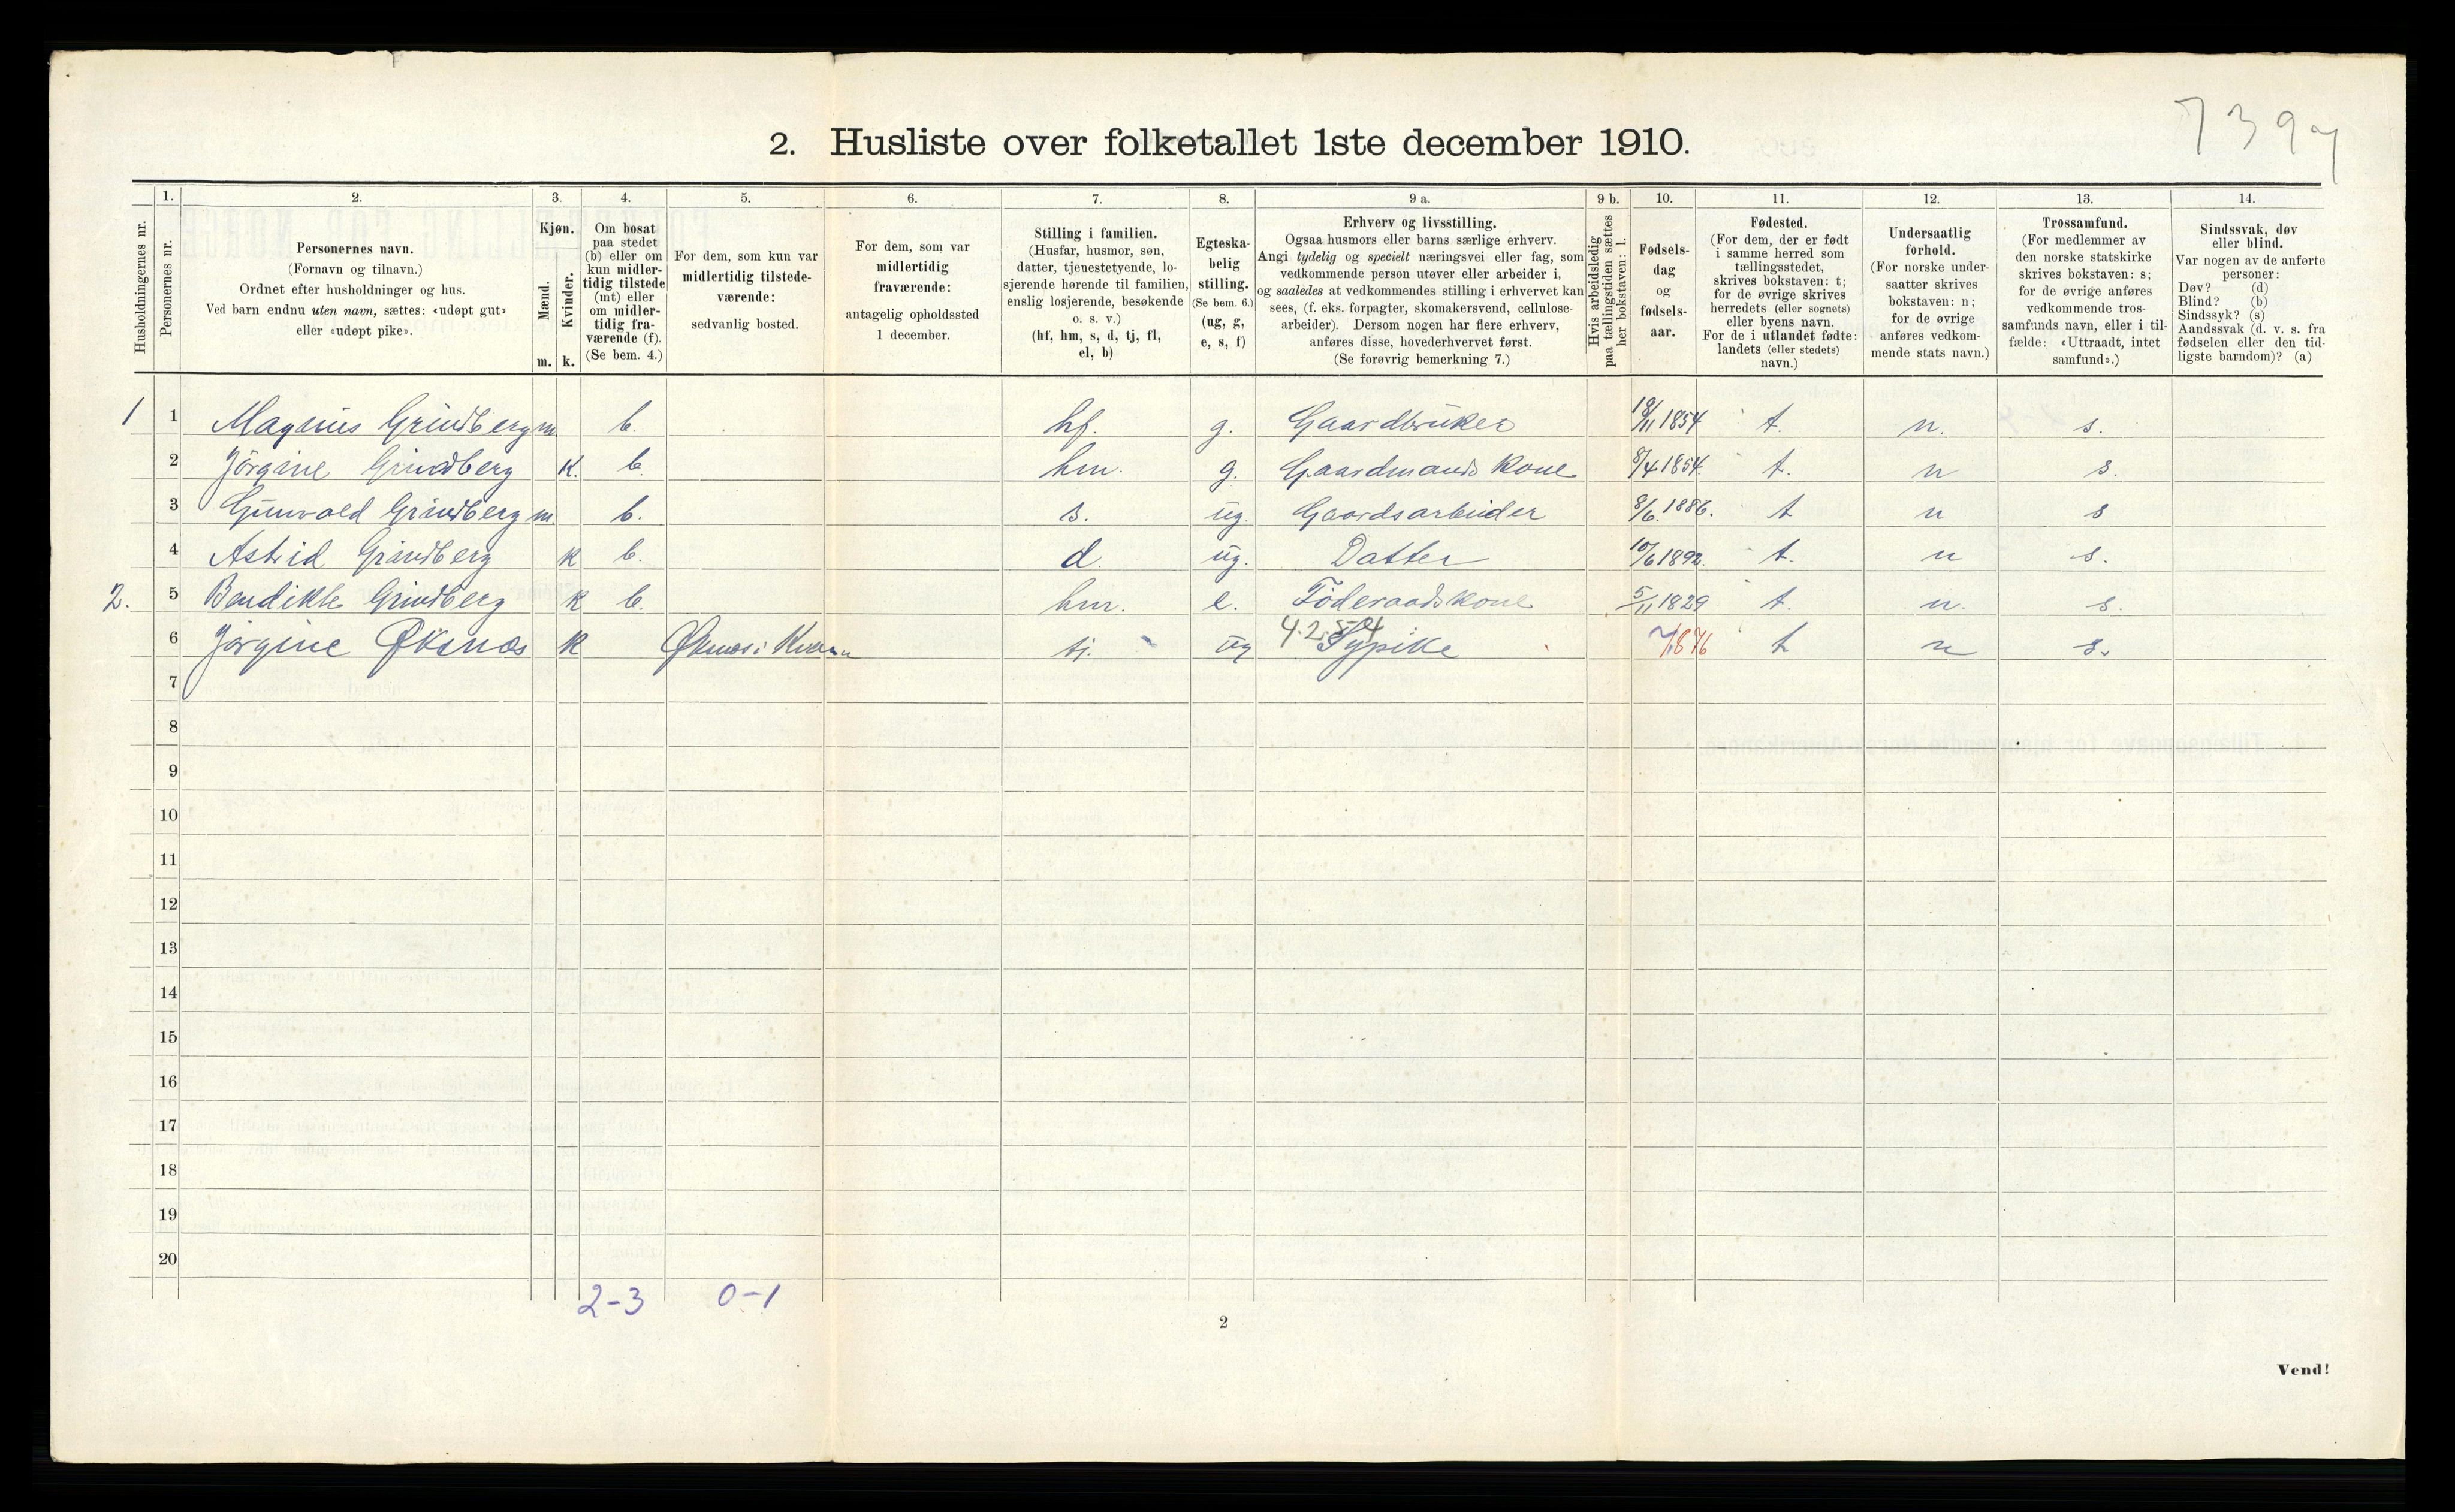 7397
2. Husliste over folketallet 1ste december 1910.
Husholdningernes nr.
1.
Personernes nr.
2.
Personernes navn.
(Fornavn og tilnavn.)
Ordnet efter husholdninger og hus.
Ved barn endnu uten navn, sættes: «udøpt gut»
eller «udøpt pike».
3.
Kjøn.
Mænd.
Kvinder.
m. k.
4.
Om bosat
paa stedet
(b) eller om
kun midler-
tidig tilstede
(mt) eller
om midler-
tidig fra-
værende (f).
(Se bem. 4.)
5.
For dem, som kun var
midlertidig tilstede-
værende:
sedvanlig bosted.
6.
For dem, som var
midlertidig
fraværende:
antagelig opholdssted
1 december.
7.
Stilling i familien.
(Husfar, husmor, søn,
datter, tjenestetyende, lo-
sjerende hørende til familien,
enslig losjerende, besøkende
o. s. v.)
(hf, hm, s, d, tj, fl,
el, b)
8.
Egteska-
belig
stilling.
(Se bem. 6.)
(ug, g,
e, s, f)
9 a.
Erhverv og livsstilling.
Ogsaa husmors eller barns særlige erhverv.
Angi tydelig og specielt næringsvei eller fag, som
vedkommende person utøver eller arbeider i,
og saaledes at vedkommendes stilling i erhvervet kan
sees, (f. eks. forpagter, skomakersvend, cellulose-
arbeider). Dersom nogen har flere erhverv,
anføres disse, hovederhvervet først.
(Se forøvrig bemerkning 7.)
9 b.
Hvis arbeidsledig
paa tællingstiden sættes
her bokstaven: l.
10.
Fødsels-
dag
og
fødsels-
aar.
11.
Fødested.
(For dem, der er født
i samme herred som
tællingsstedet,
skrives bokstaven: t;
for de øvrige skrives
herredets (eller sognets)
eller byens navn.
For de i utlandet fødte:
landets (eller stedets)
navn.)
12.
Undersaatlig
forhold.
(For norske under-
saatter skrives
bokstaven: n;
for de øvrige
anføres vedkom-
mende stats navn.)
13.
Trossamfund.
(For medlemmer av
den norske statskirke
skrives bokstaven: s;
for de øvrige anføres
vedkommende tros-
samfunds navn, eller i til-
fælde: «Uttraadt, intet
samfund».)
14.
Sindssvak, døv
eller blind.
Var nogen av de anførte
personer:
Døv? (d)
Blind? (b)
Sindssyk? (s)
Aandssvak (d. v. s. fra
fødselen eller den tid-
ligste barndom)? (a)
1 1 Magnus Grindberg m b. hf. g. Gaardbruker 18/11 1854 t. n. s.
2 Jörgine Grindberg k. b. hm. g. Gaardmands kone 8/4 1854. t. n s.
3 Gunvald Grindberg m. b. s. ug. Gaardsarbeider 8/6. 1886. t n s
4 Astrid Grindberg k b. d. ug. Datter 10/6 1892. t. n s.
2. 5 Bendikte Grindberg k b. hm. e. Föderaadskone 5/11 1829 t. n. s.
6 Jörgine Øksnæs k Øksnæs i Kvam tj. ug 4.2.54 Sypike 1876 t n s.
7
8
9
10
11
12
13
14
15
16
17
18
19
20
2-3 0-1
2
Vend!